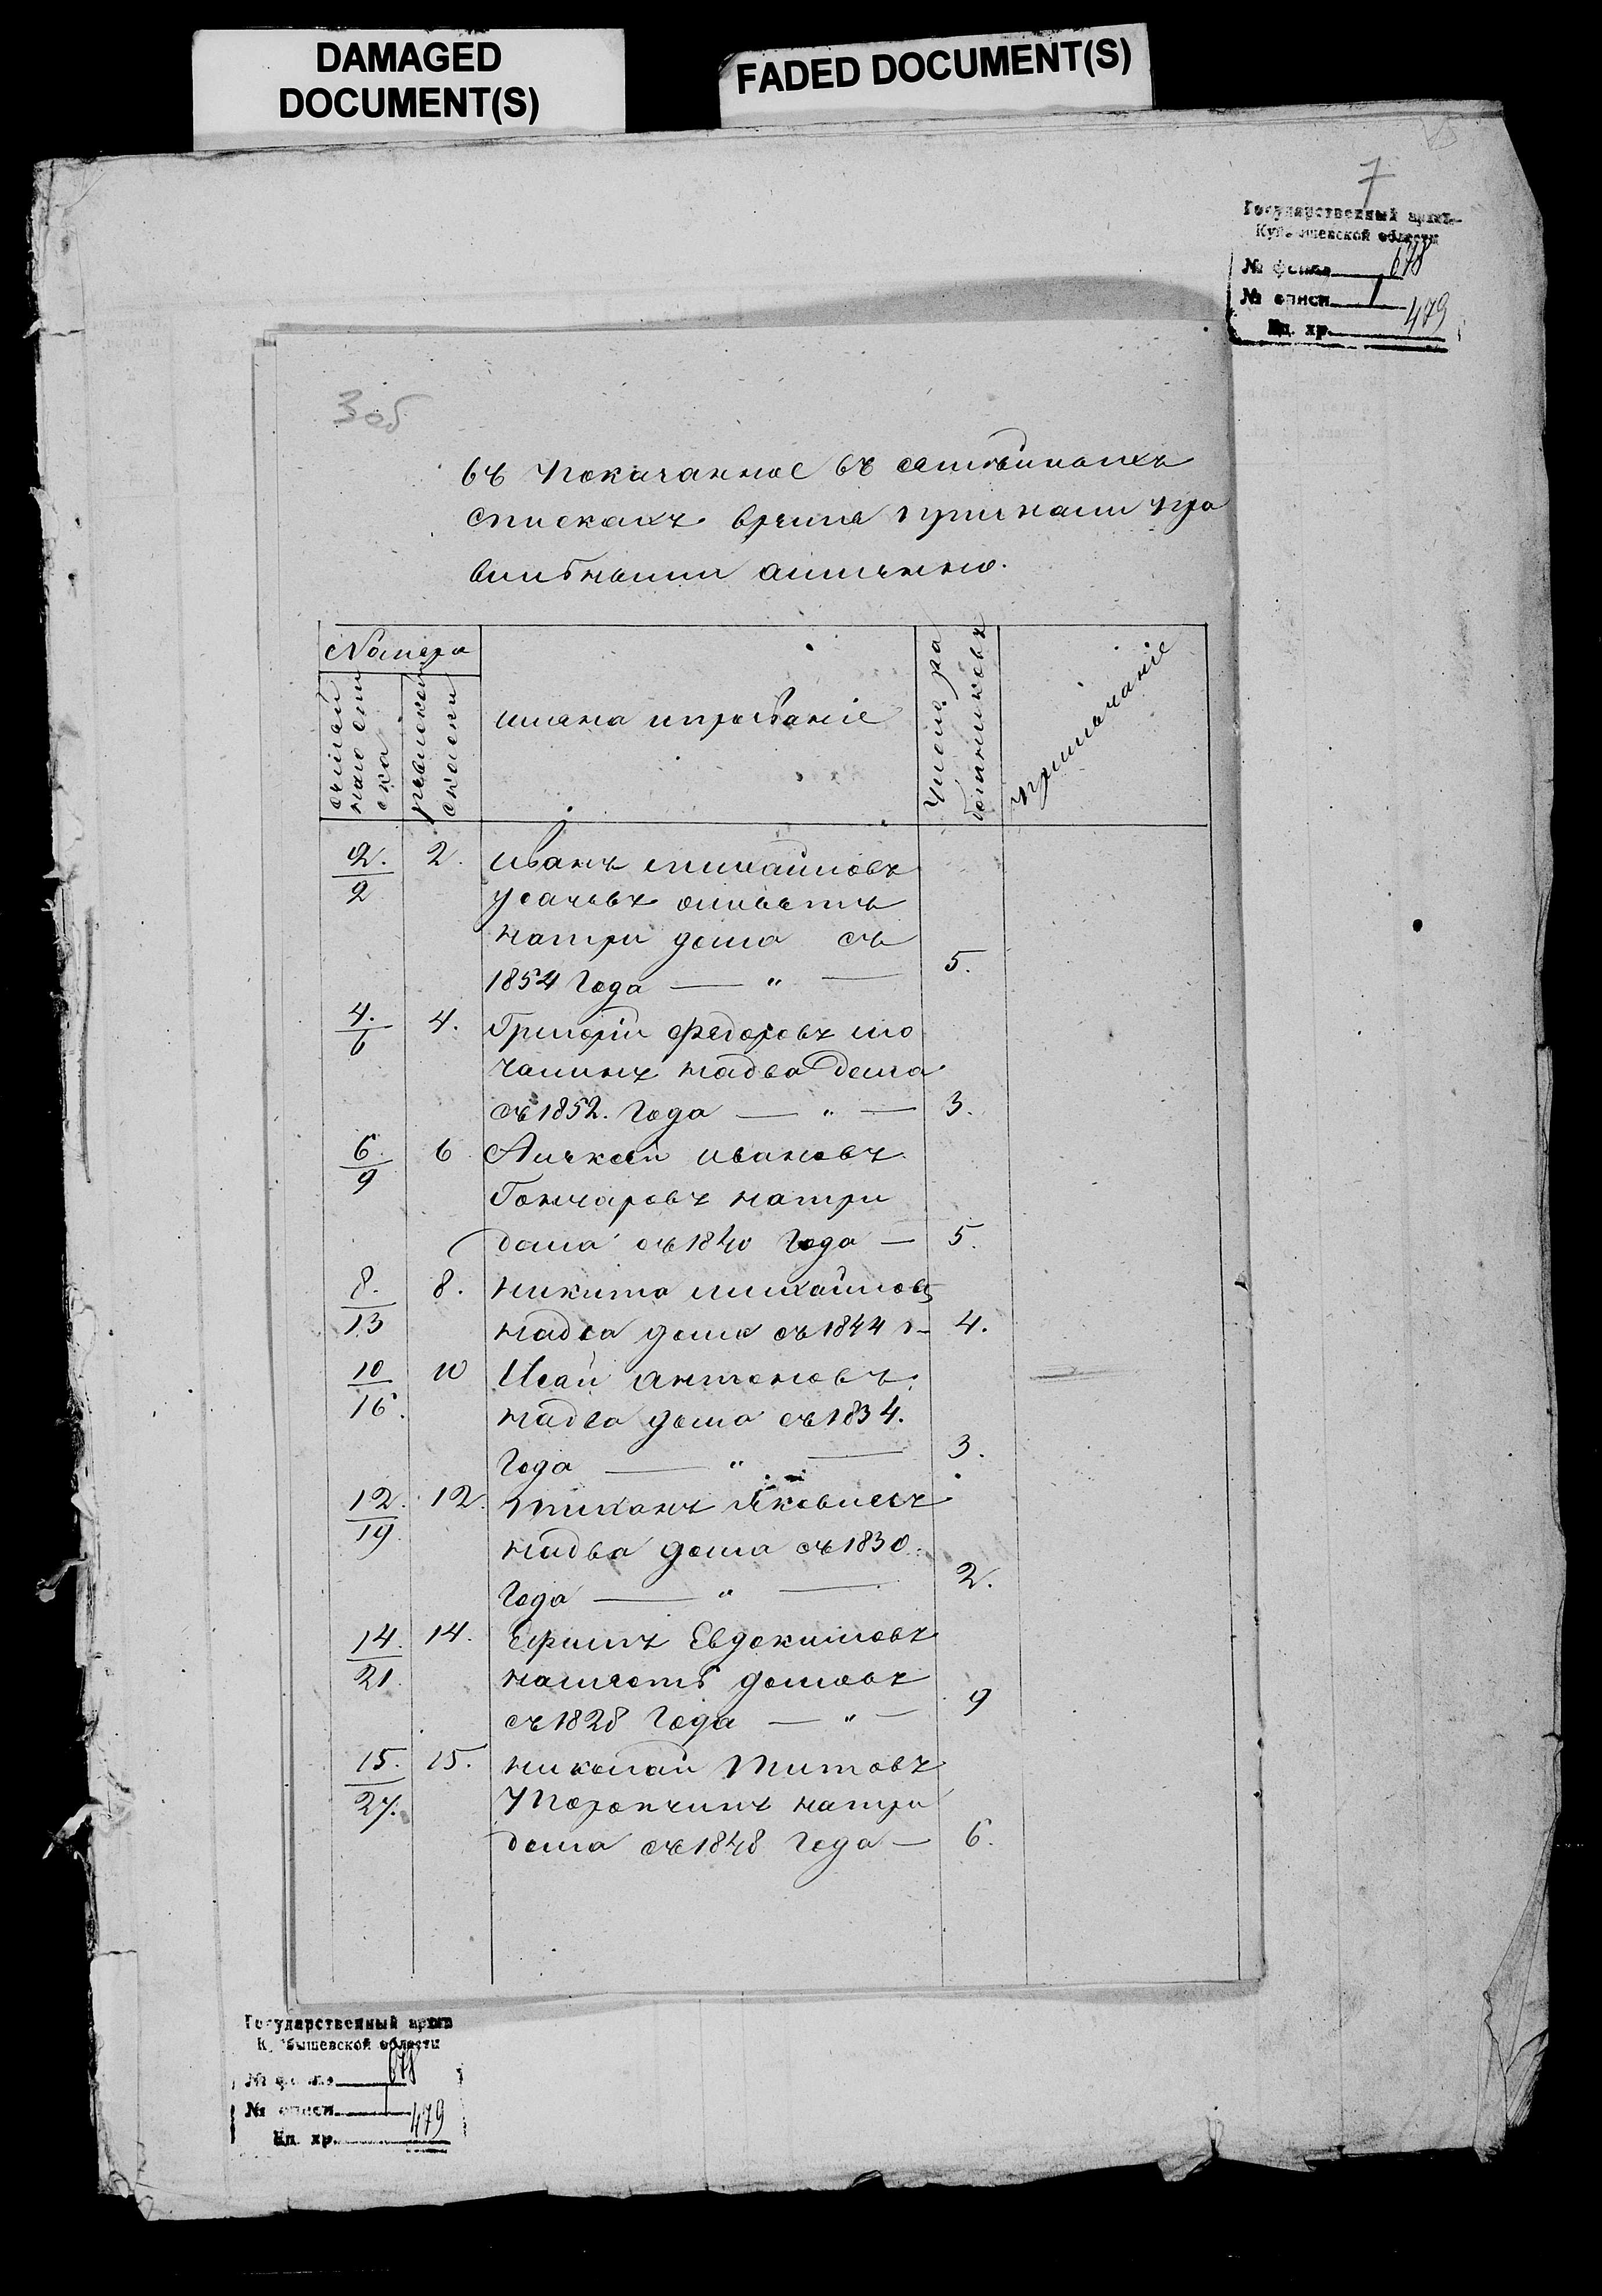 DAMAGED
DOCUMENT(S)
FADED DOCUMENT(S)
7
Государственный архив
Куйбышевской области
№ фонда 678
№ описи 1
Ед. хр. 479
305
въ показанное въ семѣйныхъ
спискахъ время
Номера
ревизской
скаски
имяна и прозваніе
Число ра
ботниковъ
Примѣчаніе
2. 2. Иванъ михайловъ
2 Усачевъ
на три дома съ
1854 Года — „ — 5.
4. 4. Григорій Федоровъ мо
6 чалинъ на два дома
съ 1852. Года — „ — 3.
6. 6 Алексѣй ивановъ
9 Гончаровъ на три
дома съ 1840 Года — 5.
8. 8. никита михайловъ
13 на два дома съ 1844 г — 4.
10 10 Исай антоновъ
16. на два дома съ 1834.
Года — „ — 3.
12. 12. тихонъ Яковлевъ
19 на два дома съ 1830.
Года — „ — 2.
14. 14. Ефимъ Евдокимовъ
21. на шесть домовъ
съ 1828 Года — „ — 9
15. 15. николай Титовъ
27. на три
дома съ 1848 Года — 6.
Государственный архив
Куйбышевской области
№ фонда 678
№ описи 1
Ед. хр. 479